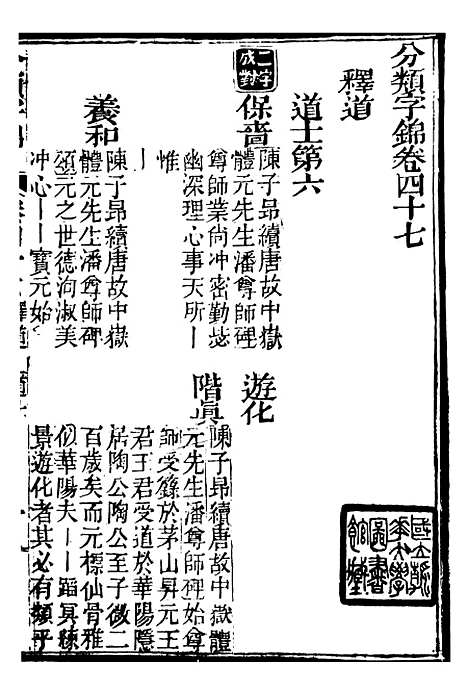 分類字錦卷四十七
釋道
道士第六
二字成對
保嗇
陳子昂續唐故中嶽
體元先生潘尊師碑
尊師業尚冲密勤毖
幽深理心事天所丨
惟
丨
養和
陳子昂續唐故中嶽
體元先生潘尊師碑
頌元之世德洵淑美
冲心丨丨寶元始
遊化
階真
陳子昂續唐故中嶽體
元先生潘尊師碑始尊
師受籙於茅山昇元王
君王君受道於華陽隱
居陶公陶公至子微二
百歲矣而元標仙骨雅
似華陽夫丨丨蹈真練
景遊化者其必有類乎
國立
大學
圖書
館藏